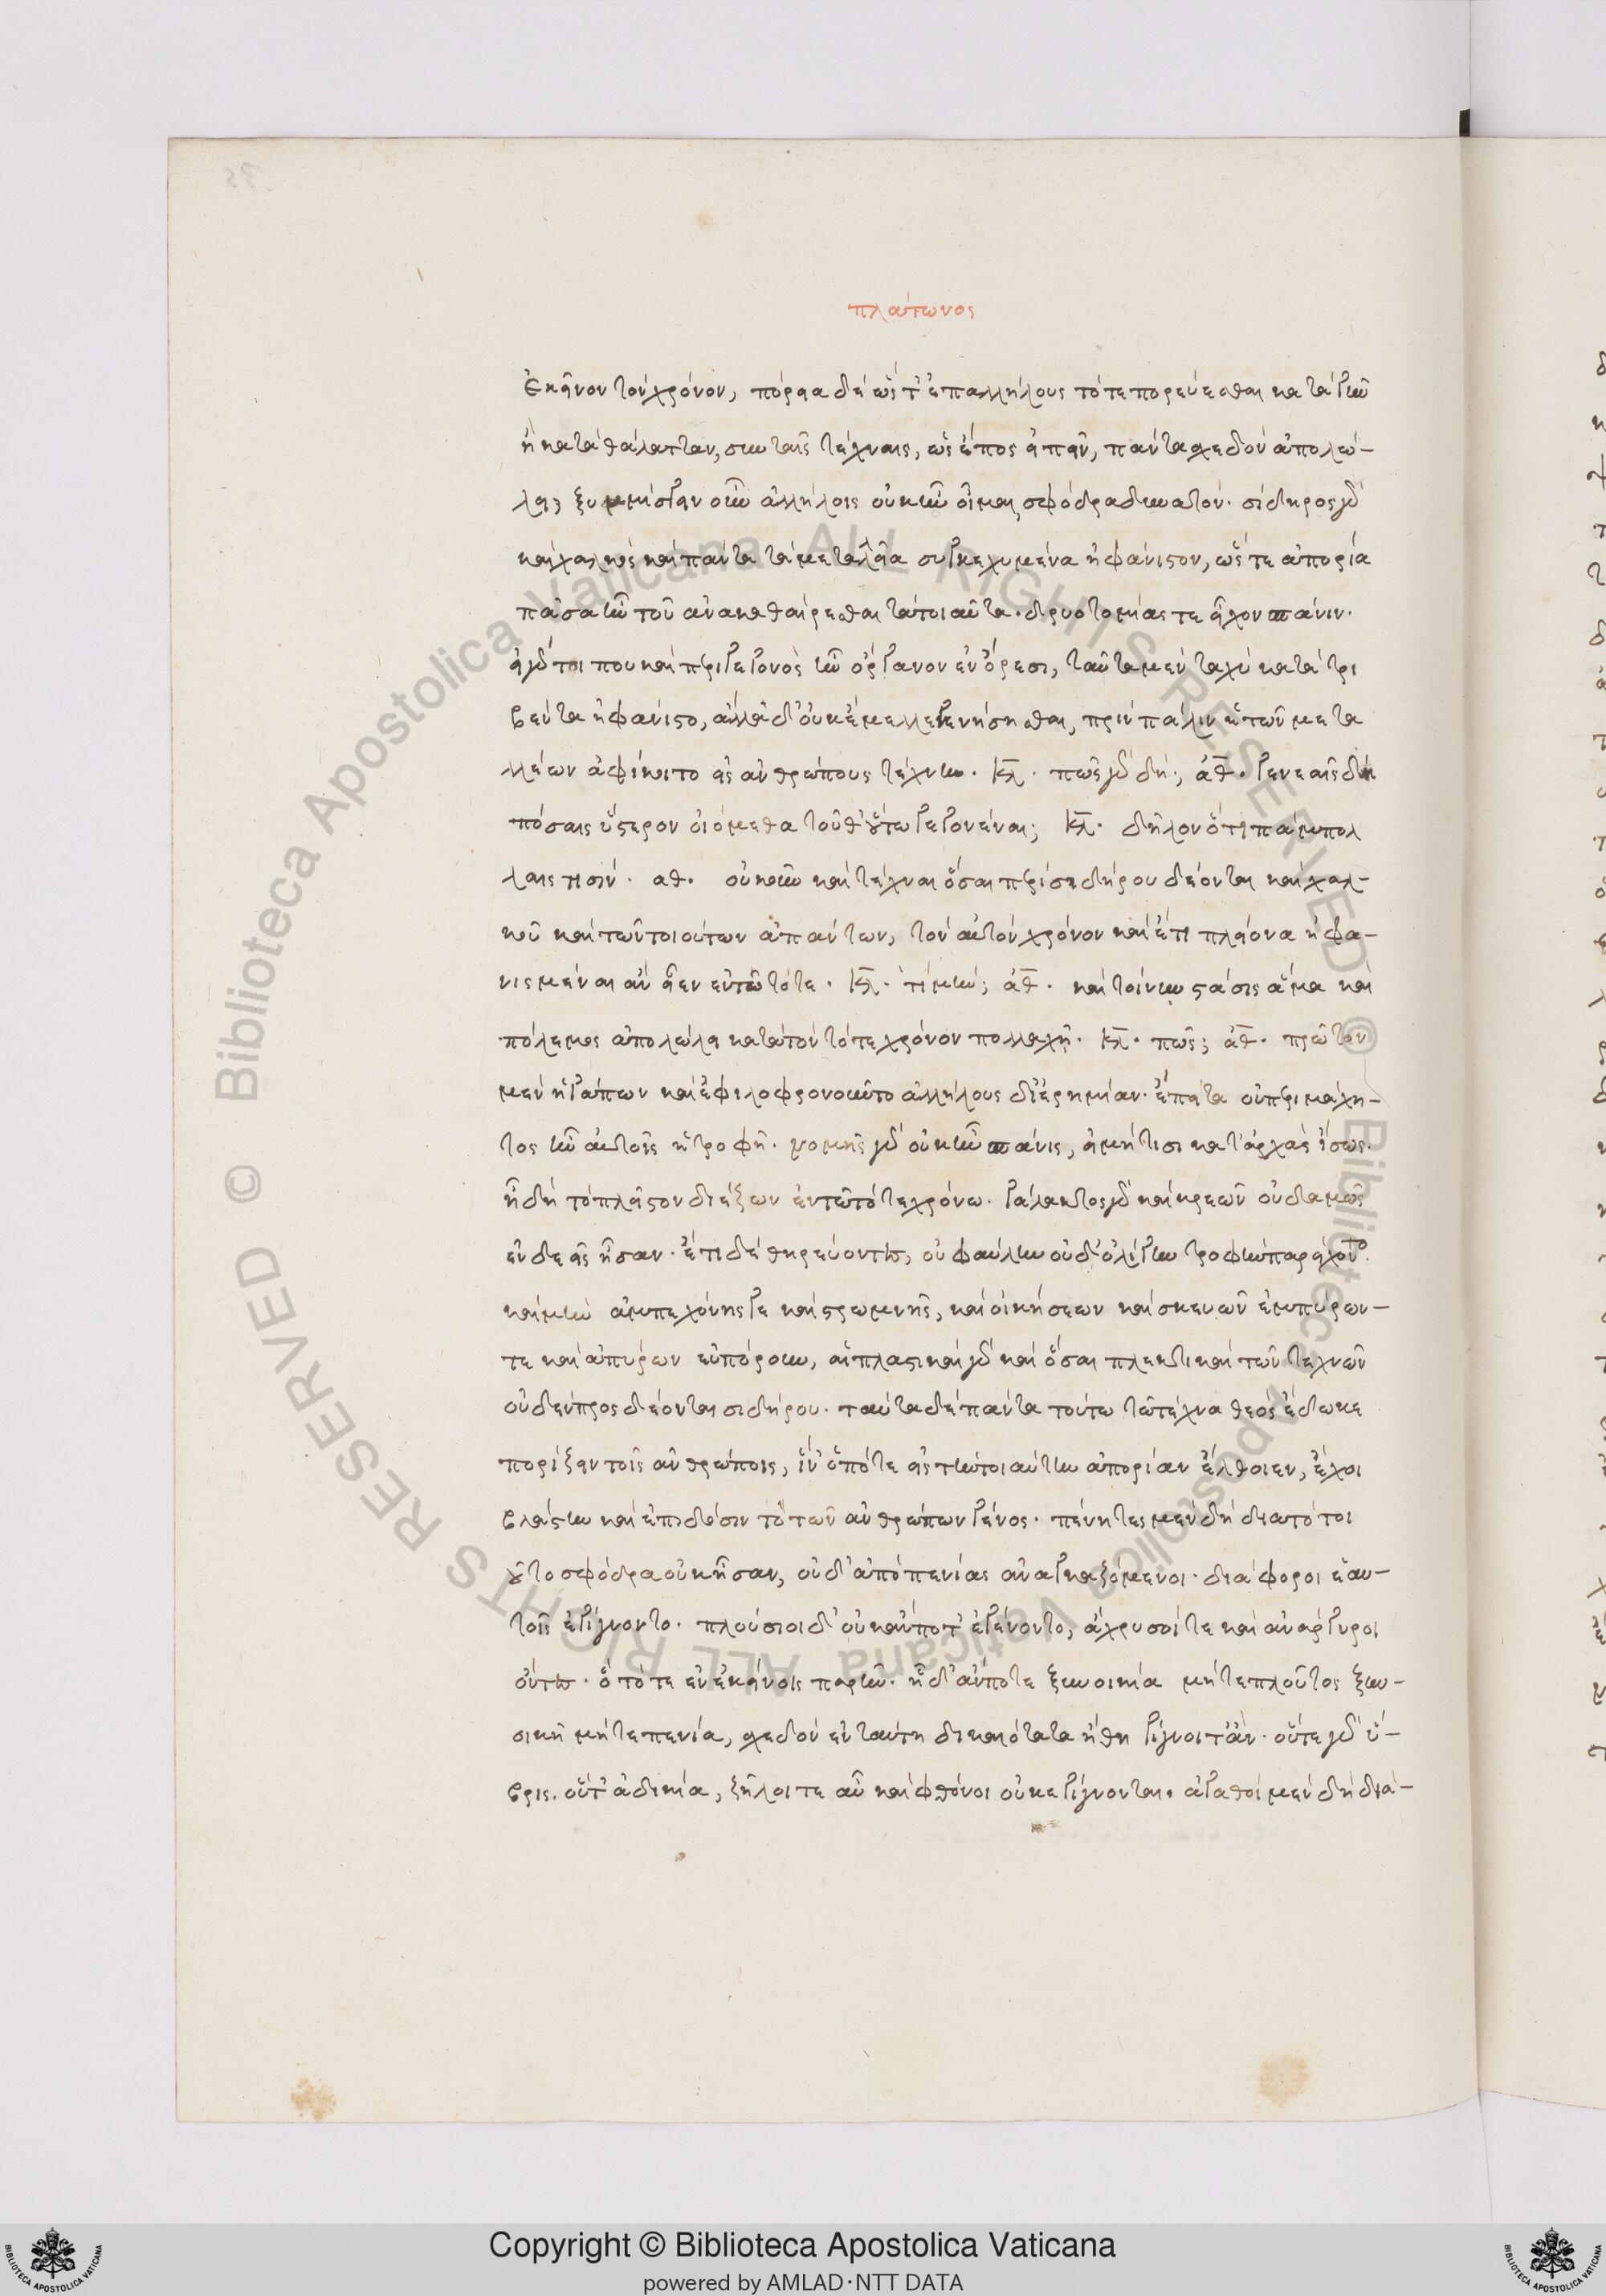 πλάτωνος
ἐκεῖνον τὸν χρόνον, πόρεια δὲ ὥστ' ἐπ' ἀλλήλους τότε πορεύεσθαι κατὰ γῆν
ἢ κατὰ θάλατταν, σὺν ταῖς τέχναις, ὡς ἔπος εἰπεῖν, πάντα σχεδὸν ἀπολώ-
λει, ξυμμίσγειν οὖν ἀλλήλοις οὐκ ἦν οἶμαι σφόδρα δυνατόν. σίδηρος γὰρ
καὶ χαλκὸς καὶ πάντα τὰ μεταλλεῖα συγκεχυμένα ἠφάνιστον, ὥστε ἀπορία
πᾶσα ἦν τοῦ ἀνακαθαίρεσθαι τὰ τοιαῦτα. δρυοτομίας τε εἶχον σπάνιν.
εἰ γάρ τι που καὶ περιγεγονὸς ἦν ὄργανον ἐν ὄρεσι, ταῦτα μὲν ταχὺ κατατρι
βέντα ἠφάνιστο, ἄλλα δ' οὐκ ἔμελλε γενήσεσθαι, πρὶν πάλιν ἡ τῶν μεταλ
λέων ἀφίκοιτο εἰς ἀνθρώπους τέχνη. κλ. πῶς γὰρ δή; ἀθ. γενεαῖς δὴ
πόσαις ὕστερον οἰόμεθα τοῦθ' οὕτω γεγονέναι; κλ. δῆλον ὅτι παμπόλ
λαις τισίν. αθ. οὐκοῦν καὶ τέχναι ὅσαι περ σιδήρου δέονται καὶ χαλ-
κοῦ καὶ τῶν τοιούτων ἁπάντων, τὸν αὐτὸν χρόνον καὶ ἔτι πλείονα ἠφα-
νισμέναι ἂν εἶεν ἐν τῷ τότε. κλ. τί μήν; ἀθ. καὶ τοίνυν στάσις ἅμα καὶ
πόλεμος ἀπολώλει κατὰ τὸν τότε χρόνον πολλαχῇ. κλ. πῶς; ἀθ. πρῶτον
μὲν ἠγάπων καὶ ἐφιλοφρονοῦντο ἀλλήλους δι' ἐρημίαν. ἔπειτα οὐ περιμάχη-
τος ἦν αὐτοῖς ἡ τροφή. νομῆς γὰρ οὐκ ἦν σπάνις, εἰ μή τισι κατ' ἀρχὰς ἴσως.
ᾗ δὴ τὸ πλεῖστον διέζων ἐν τῷ τότε χρόνω. γάλακτος γὰρ καὶ κρεῶν οὐδαμῶς
ἐνδεεῖς ἦσαν. ἔτι δὲ θηρεύοντες, οὐ φαύλην οὐδ' ὀλίγην τροφὴν παρείχοντο.
καὶ μὴν ἀμπεχόνης γε καὶ στρωμνῆς, καὶ οἰκήσεων καὶ σκευῶν ἐμπύρων-
τε καὶ ἀπύρων εὐπόρουν, αἱ πλαστικαὶ γὰρ καὶ ὅσαι πλεκτικαὶ τῶν τεχνῶν
οὐδὲν προσδέονται σιδήρου. ταῦτα δὲ πάντα τούτω τὼ τέχνα θεὸς ἔδωκε
πορίζειν τοῖς ἀνθρώποις, ἵν' ὁπότε εἰς τὴν τοιαύτην ἀπορίαν ἔλθοιεν, ἔχοι
βλάστην καὶ ἐπίδοσιν τὸ τῶν ἀνθρώπων γένος. πένητες μὲν δὴ διὰ τὸ τοι
οῦτο σφόδρα οὐκ ἦσαν, οὐδ' ἀπὸ πενίας ἀναγκαζόμενοι. διάφοροι ἑαυ-
τοῖς ἐγίγνοντο. πλούσιοι δ' οὐκ ἄν ποτ' ἐγένοντο, ἄχρυσοί τε καὶ ἀνάργυροι
ὄντες. ὃ τότε ἐν ἐκείνοις παρῆν. ᾗ δ' ἄν ποτε ξυνοικία μήτε πλοῦτος ξυν-
οικῇ μήτε πενία, σχεδὸν ἐν ταύτῃ δικαιότατα ἤθη γίγνοιτ' ἄν. οὔτε γὰρ ὕ-
βρις. οὔτ' ἀδικία, ζῆλοί τε αὖ καὶ φθόνοι οὐκ ἐγίγνονται. ἀγαθοὶ μὲν δὴ διὰ-